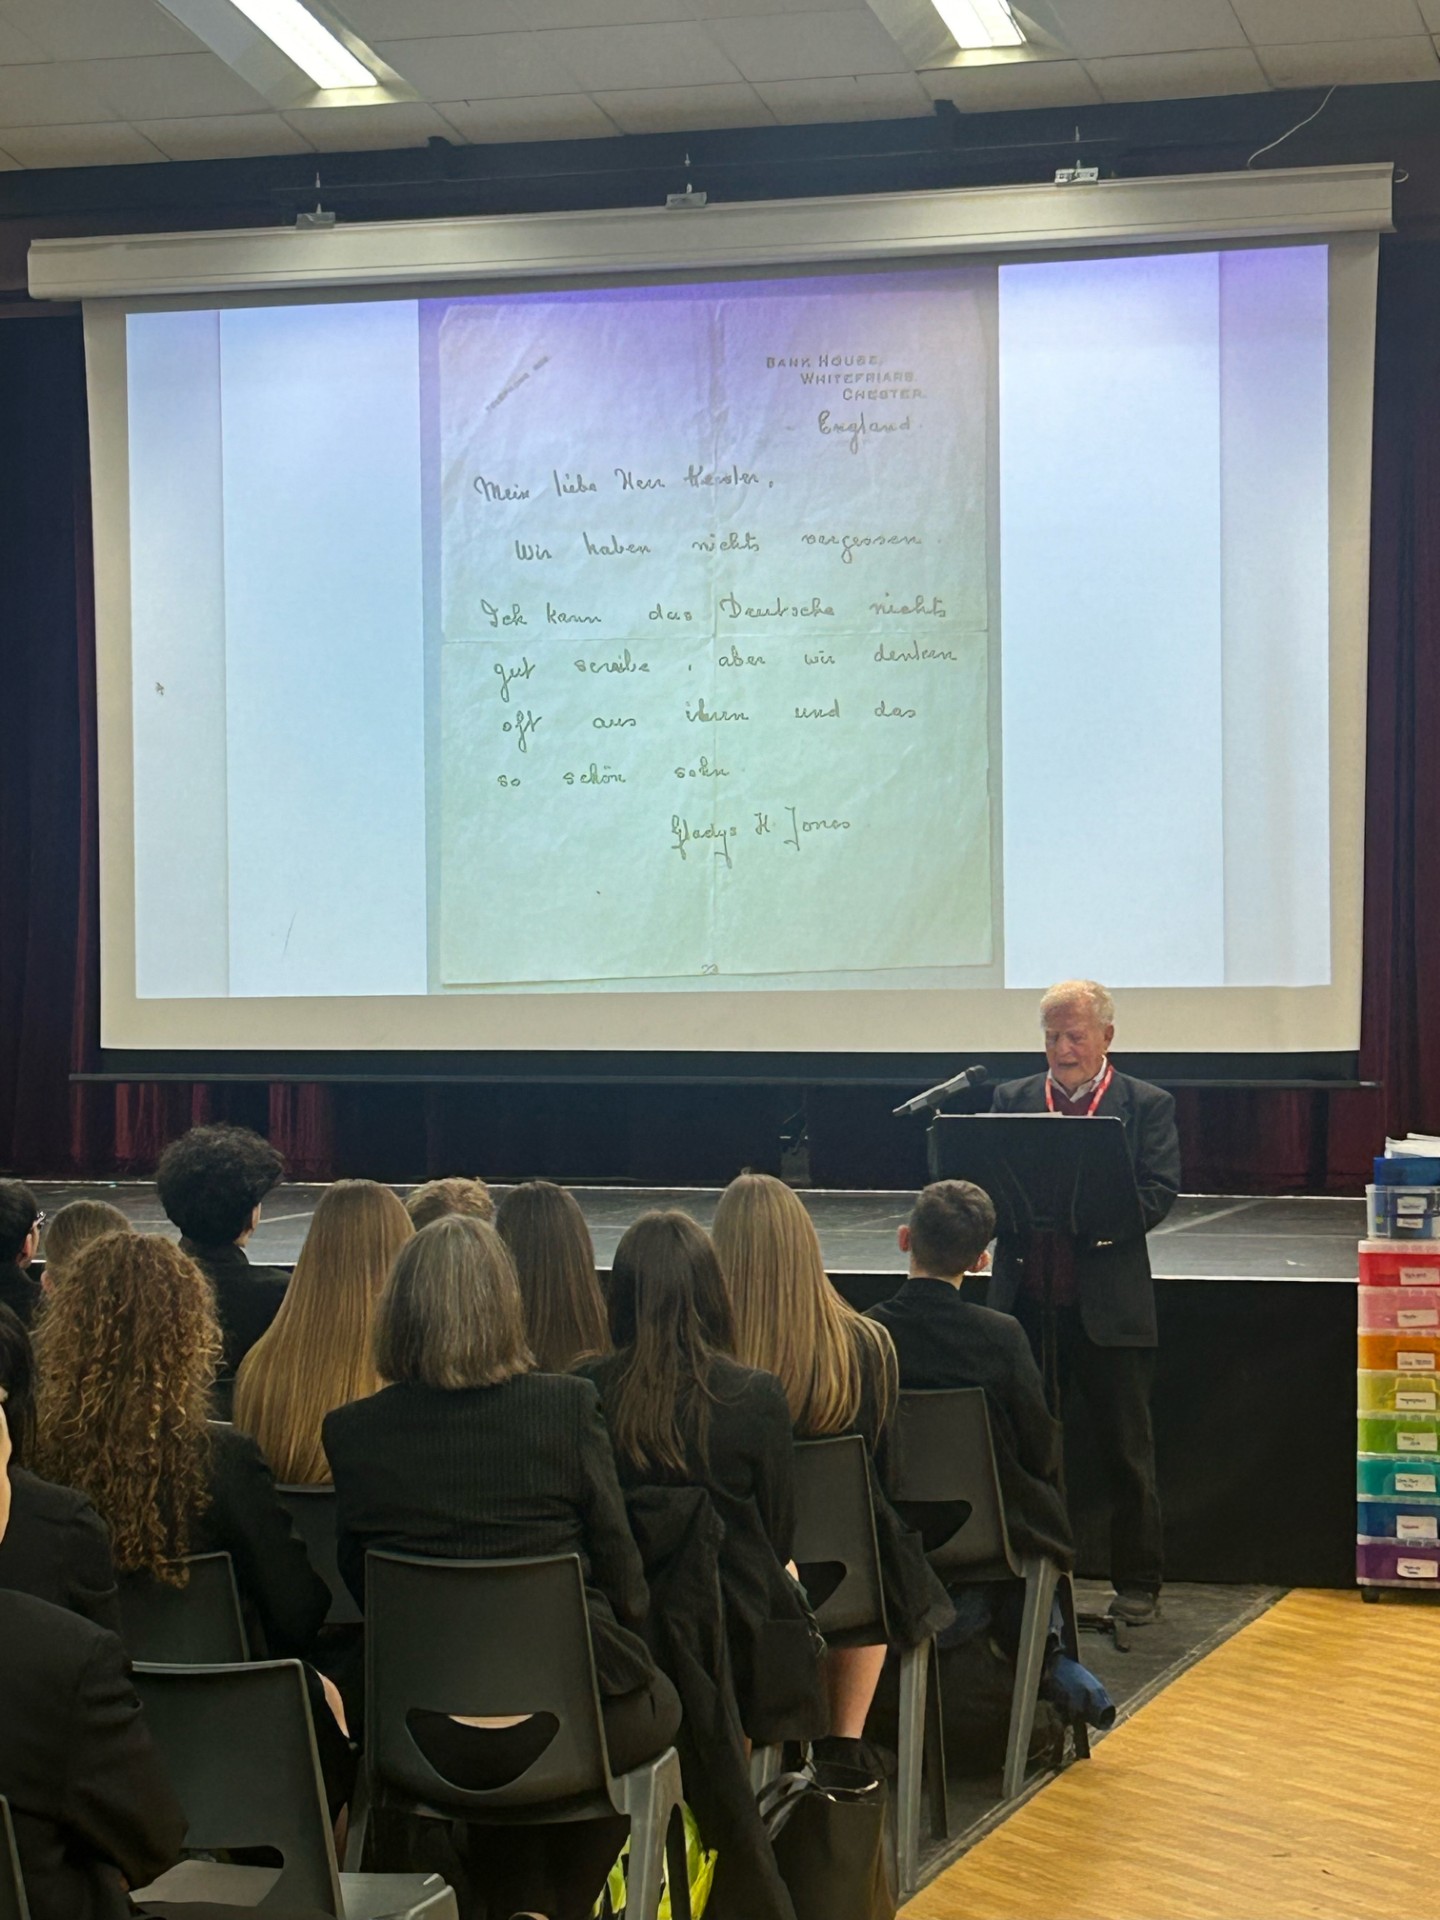 BANK HOUSE,
WHITEFRIARS.
CHESTER.
England.
Mein liebe Herr
Wir haben nichts vergessen.
Ich kann das Deutsche nichts
gut scraibe, aber wir denken
oft aus ihren und das
so schön sohn.
Gladys H. Jones